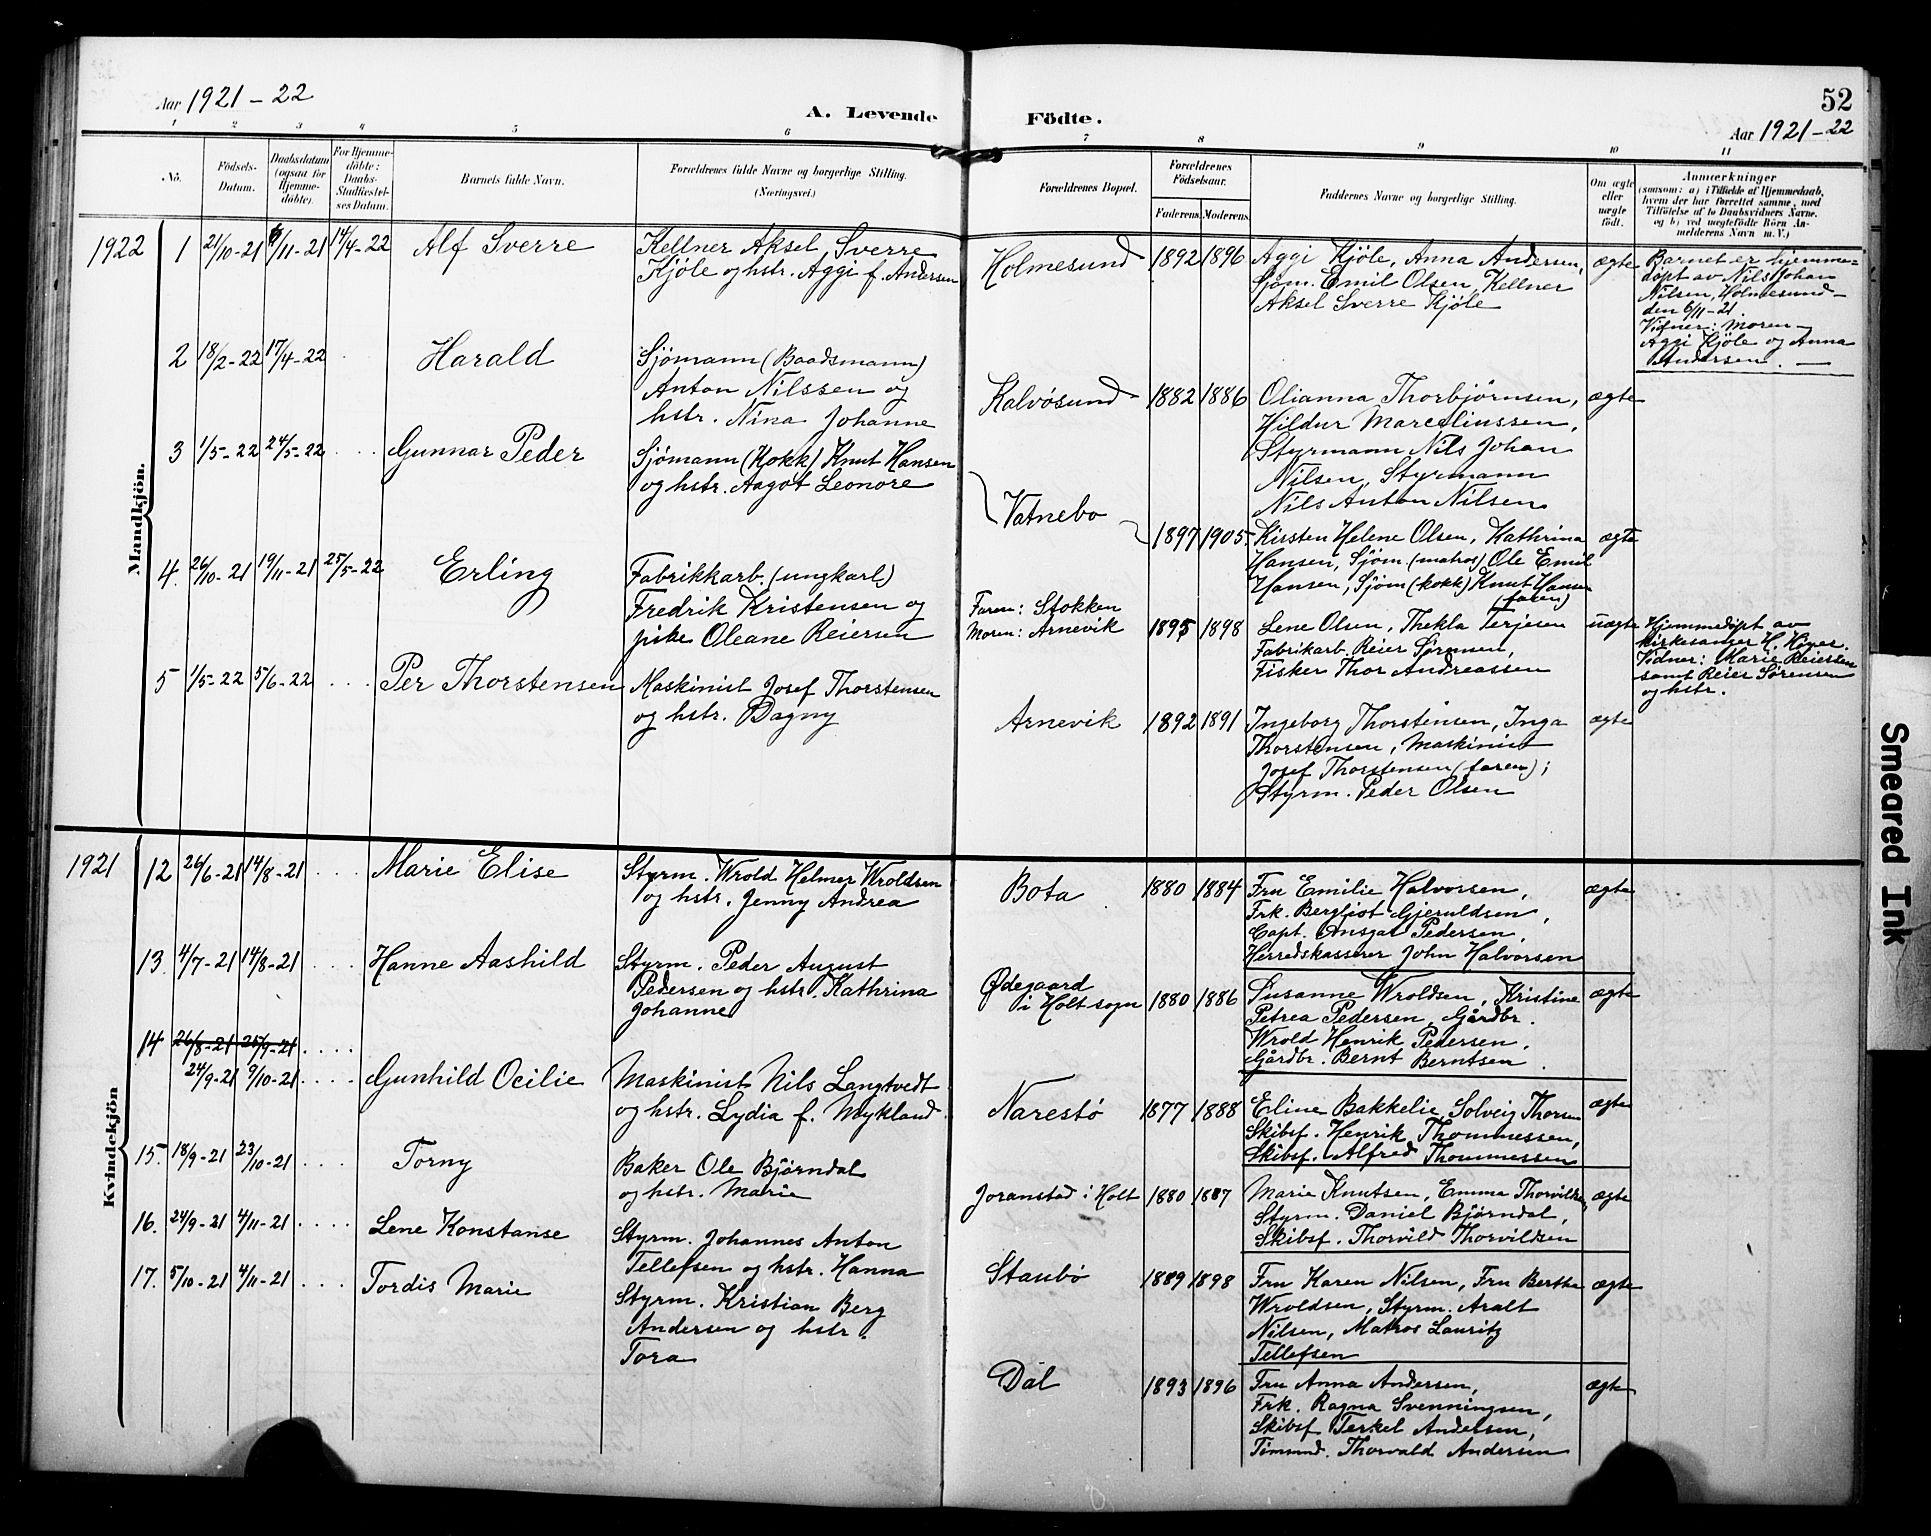 Aar 1921-22
A. Levende
Födte.
52
Aar 1921-22
1 2 3 4 5 6 7 8 9 10 11
No.
Födsels-
Datum.
Daabsdatum
(ogsaa for
Hjemme-
döbte).
For Hjemme-
döbte:
Daabs-
Stadfæstel-
ses Datum.
Barnets fulde Navn.
Forældrenes fulde Navne og borgerlige Stilling.
(Næringsvei.)
Forældrenes Bopæl.
Forældrenes
Födselsaar.
Faderens. Moderens.
Faddernes Navne og borgerlige Stilling.
Om ægte
eller
uægte
födt.
Anmærkninger
(saasom: a) i Tilfælde af Hjemmedaab,
hvem der har forrettet samme, med
Tilföielse af to Daabsvidners Navne,
og b) ved uægtefödte Börn An-
melderens Navn m. V.)
Mandkjön.
1922
1 21/10-21 6/11-21 14/4-22 Alf Sverre
Kellner Aksel Sverre
Kjöle og hstr. Aggi f. Andersen
Holmesund 1892 1896
Aggi Kjöle, Anna Andersen,
Sjöm. Emil Olsen, Kellner
Aksel Sverre Kjöle
ægte
Barnet er hjemme-
döpt av Nils Johan
Nilsen, Holmesund
den 6/11-21.
Vidner: Moren
Aggi Kjöle og Anna
Andersen.
2 18/2-22 17/4-22 Harald
Sjömann (Baadsmann)
Anton Nilssen og
hstr. Nina Johanne
Kalvösund 1882 1886
Olianna Thorbjörnsen,
Hildur Marceliussen,
Styrmann Nils Johan
Nilsen, Styrmann
Nils Anton Nilsen
ægte
3 1/5-22 24/5-22 Gunnar Peder
Sjömann (Kokk) Knut Hansen
og hstr. Aagot Leonore
Vatnebo 1897 1905.
Kirsten Helene Olsen, Kathrina
Hansen, Sjöm (matros) Ole Emil
Hansen, Sjöm (kokk) Knut Hansen
(faren)
ægte
4. 26/10-21 19/11-21 25/5-22 Erling
Fabrikkarb. (ungkarl)
Fredrik Kristensen og
pike Oleane Reiersen
Faren: Stokken
Moren: Arnevik 1895 1898
Lene Olsen, Thekla Terjesen
Fabrikarb. Reier Sörensen,
Fisker Thor Andreassen
uægte
Hjemmedöpt av
kirkesanger H. Höyer.
Vidner: Marie Reiersen
samt Reier Sörensen
og hstr.
5 1/5-22 5/6-22 Per Thorstensen
Maskinist Josef Thorstensen
og hstr. Dagny
Arnevik 1892 1891
Ingeborg Thorstensen, Inga
Thorstensen, Maskinist
Josef Thorstensen (faren);
Styrm. Peder Olsen
ægte
Kvindekjön
1921
12 26/6-21 14/8-21 Marie Elise
Styrm. Wrold Helmer Wroldsen
og hstr. Jenny Andrea
Bota 1880 1884
Fru Emilie Halvorsen,
Frk. Bergliot Gjeruldsen,
Capt. Ansgar Pedersen,
Herredskasserer John Halvorsen
ægte
13. 4/7-21 14/8-21 Hanne Aashild
Styrm. Peder August
Pedersen og hstr. Kathrina
Johanne
Ødegaard
i Holt sogn 1880 1886
Susanne Wroldsen, Kristine
Petrea Pedersen, Gårdbr.
Wrold Henrik Pedersen,
Gårdbr. Bernt Berntsen.
ægte
14 26/8-21 25/9-21
24/9-21 9/10-21 Gunhild Ocilie
Maskinist Nils Langtvedt
og hstr. Lydia f. Mykland.
Narestö 1877 1888
Eline Bakkelie, Solveig Thorsen
Skibsf. Henrik Thommessen,
Skibsf. Alfred Thommessen
ægte
15. 18/9-21 23/10-21 Torny
Baker Ole Björndal
og hstr. Marie
Joranstad i Holt 1880 1887
Marie Knutsen, Emma Thorvildsen,
Styrm. Daniel Björndal,
Skibsf. Thorvild Thorvildsen
ægte
16. 24/9-21 4/11-21 Lene Konstanse
Styrm. Johannes Anton
Tellefsen og hstr. Hanna
Staubö 1889 1898
Fru Karen Nilsen, Fru Berthe
Wroldsen, Styrm. Aralt
Nilsen, Matros Lauritz
Tellefsen
ægte
17. 5/10-21 4/11-21 Tordis Marie
Styrm. Kristian Berg
Andersen og hstr.
Tora
Dal 1893 1896
Fru Anna Andersen,
Frk. Ragna Svenningsen,
Skibsf Terkel Andersen,
Tömmand. Thorvald Andersen
ægte
Smeared Ink